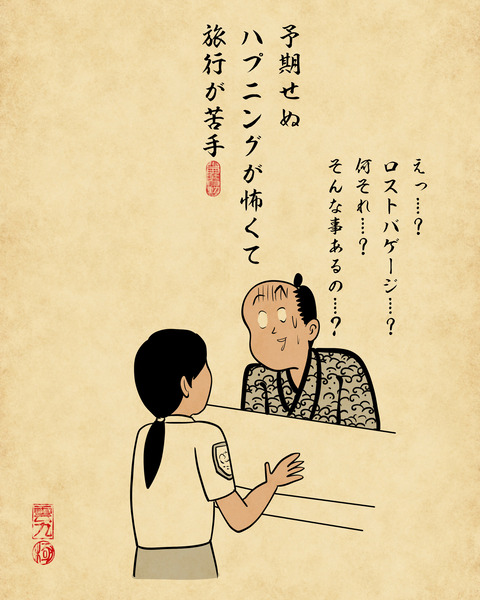 予期せぬ
ハプニングが怖くて
旅行が苦手
えっ……?
ロストバゲージ……?
何それ……?
そんな事あるの……?